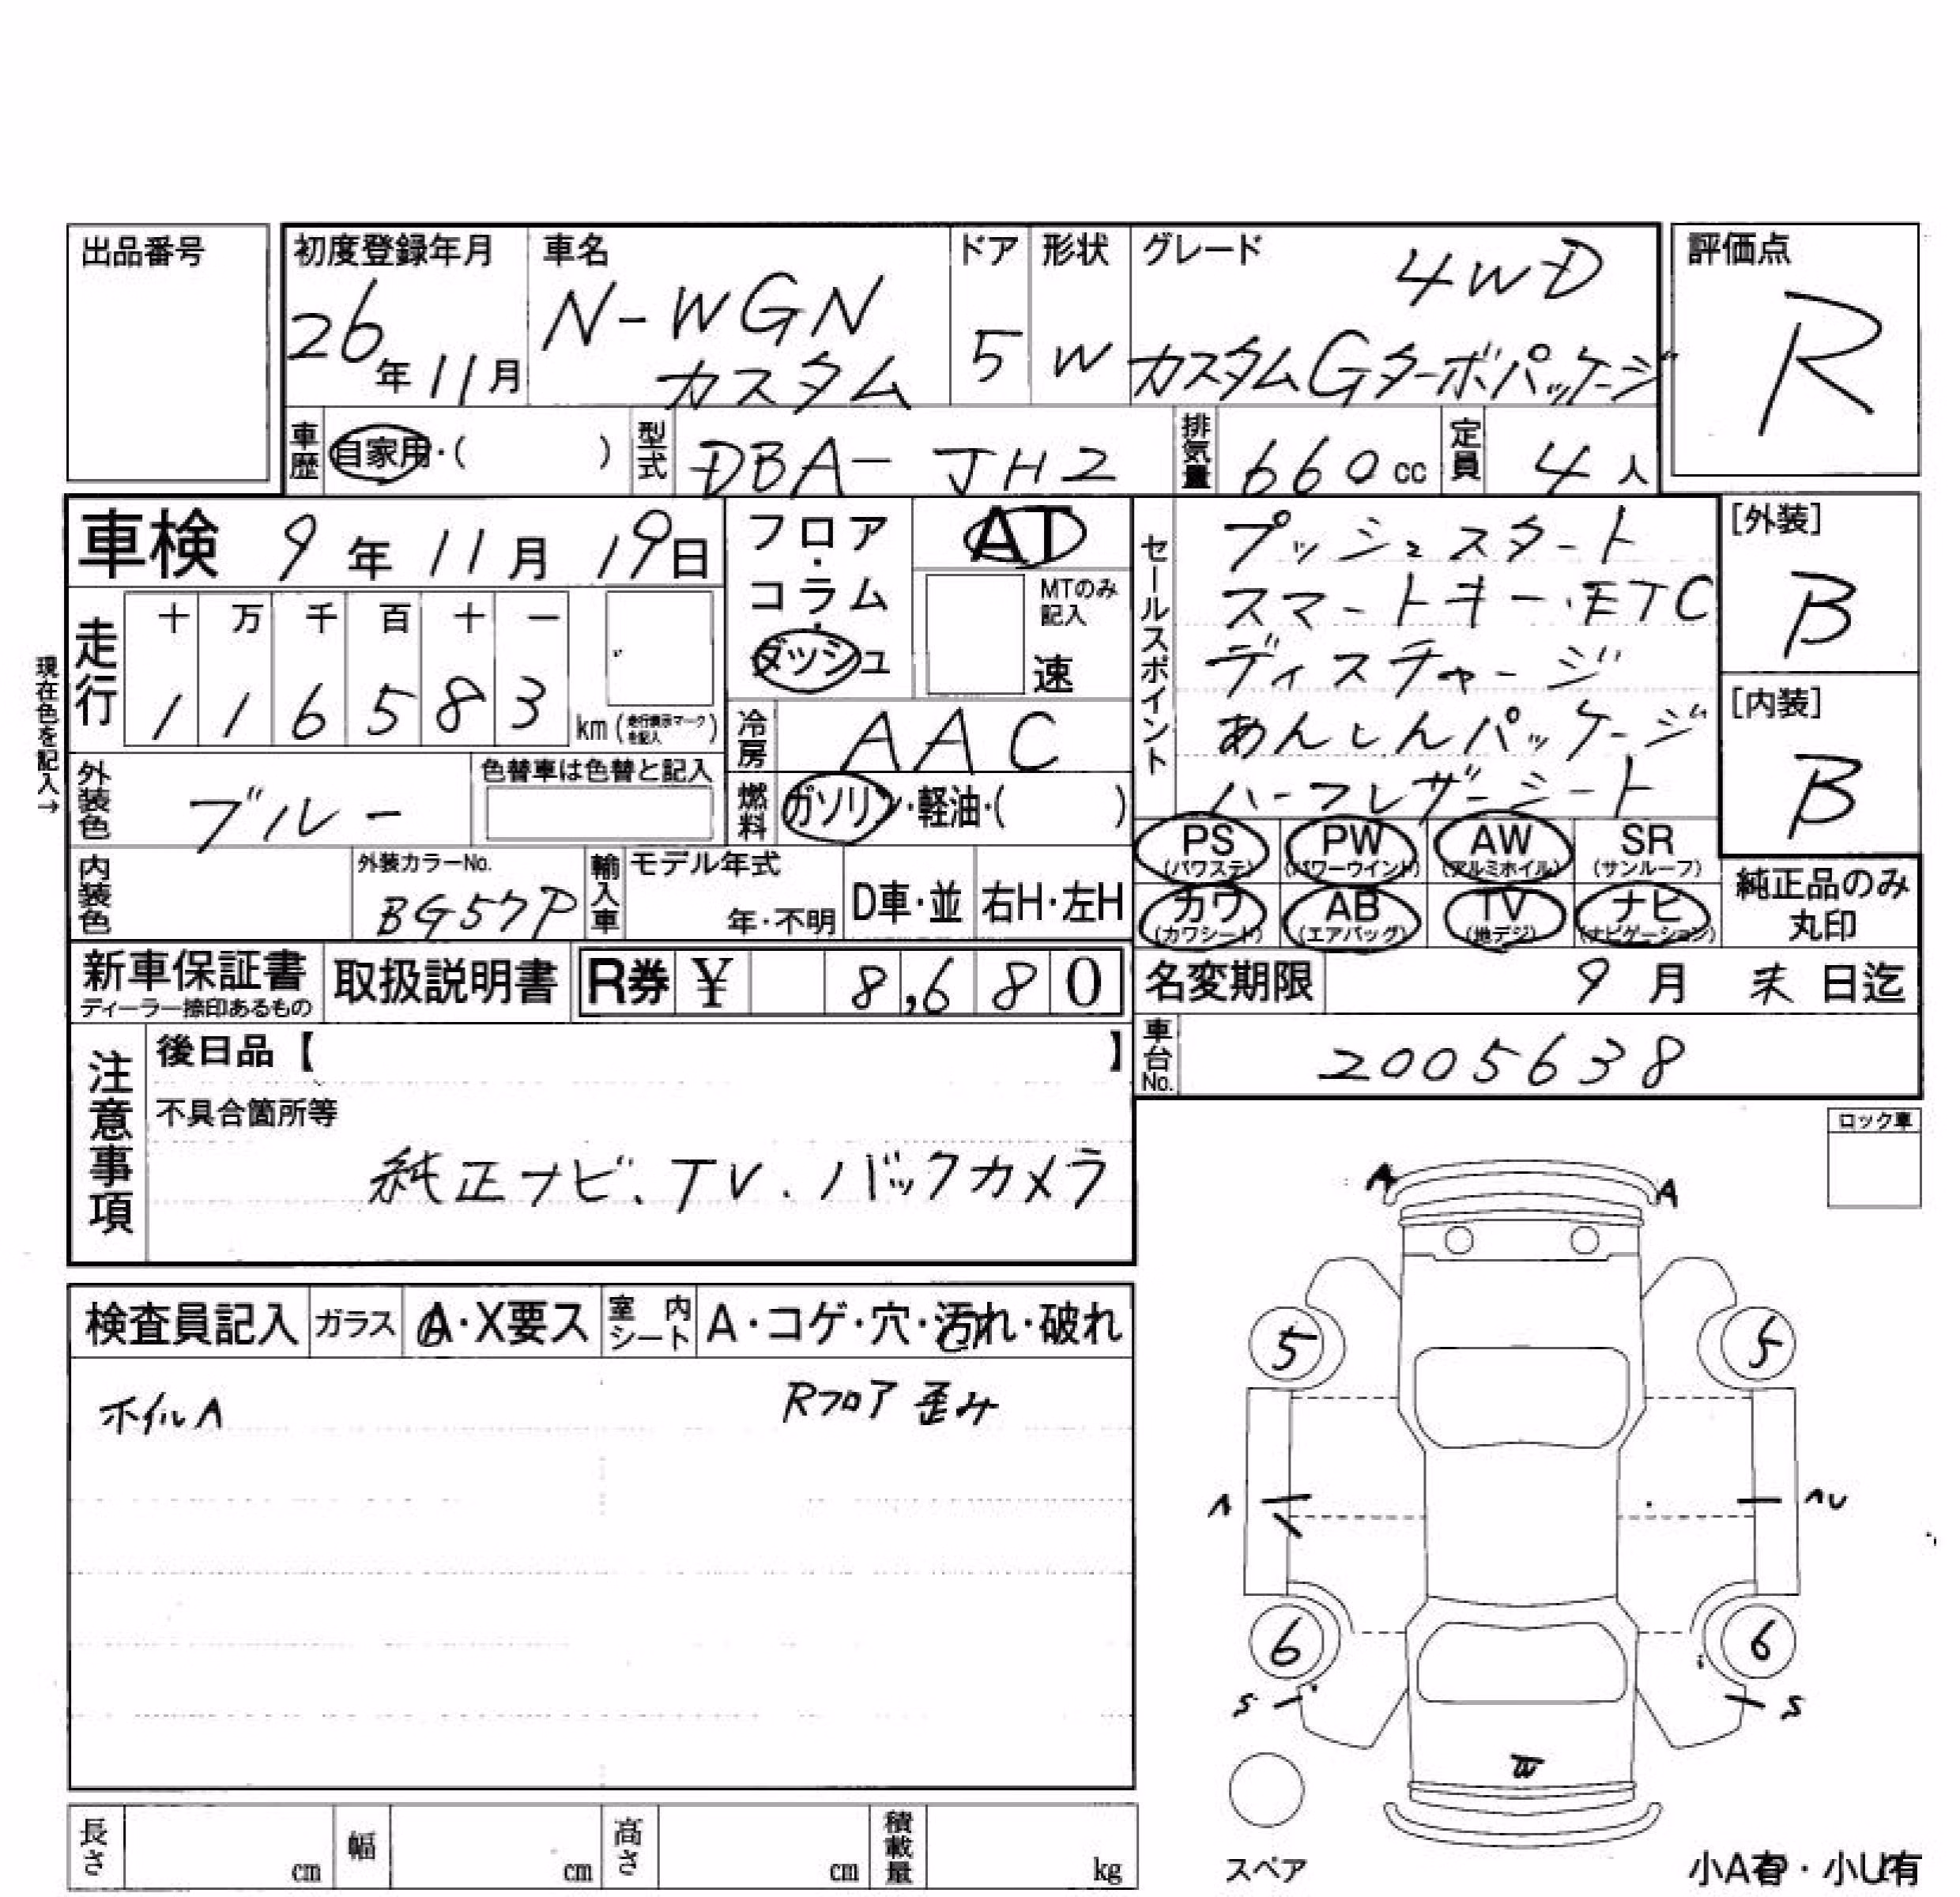 出品番号
初度登録年月 車名 ドア 形状 グレード 評価点
26年11月 N-WGN カスタム 5 W 4WD カスタムGターボパッケージ R
車歴 自家用・( ) 型式 DBA-JH2 排気量 660cc 定員 4人
車検 9年11月19日
フロア・コラム・ダッシュ
AT
MTのみ記入
速
セールスポイント
プッシュスタート
スマートキー・ETC
ディスチャージ
あんしんパッケージ
ハーフレザーシート
[外装]
B
[内装]
B
走行 十 万 千 百 十 一
1 1 6 5 8 3 km (走行表示マークを記入)
現在色を記入→
冷房 AAC
外装色 ブルー 色替車は色替と記入
燃料 ガソリン・軽油・( )
PS (パワステ) PW (パワーウインド) AW (アルミホイル) SR (サンルーフ)
カワ (カワシート) AB (エアバッグ) TV (地デジ) ナビ (ナビゲーション)
純正品のみ
丸印
内装色 外装カラーNo. BG57P 輸入車 モデル年式 年・不明 D車・並 右H・左H
新車保証書 ディーラー捺印あるもの 取扱説明書 R券 ¥ 8,680 名変期限 9月末日迄
車台No. 2005638
注意事項
後日品【 】
不具合箇所等
純正ナビ、TV、バックカメラ
ロック車
A A
検査員記入 ガラス A・X要ス 室内シート A・コゲ・穴・汚れ・破れ
ホイルA Rフロア歪み
5 5
A AU
6 6
S S
W
スペア
小A有・小U有
長さ cm 幅 cm 高さ cm 積載量 kg